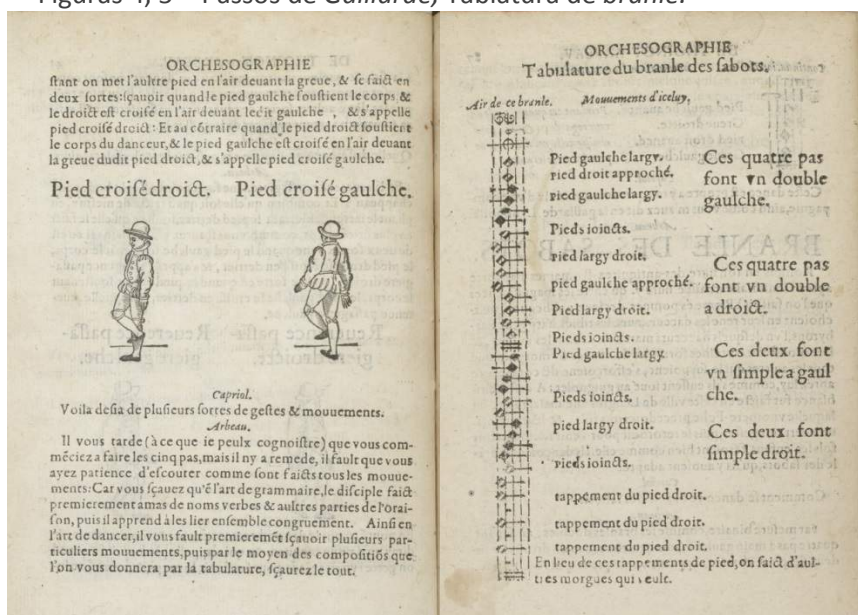 Figuras 4, 5 – Passos de Gaillarde, Tablatura de branle.
ORCHESOGRAPHIE
ſtant on met l'aultre pied en l'air deuant la greue, & ſe faict en
deux ſortes: ſçauoir quand le pied gaulche ſouſtient le corps, &
le droict eſt croiſé en l'air deuant ledit gaulche , & s'appelle
pied croiſé droict: Et au cõtraire quand le pied droict ſouſtient
le corps du danceur, & le pied gaulche eſt croiſé en l'air deuant
la greue dudit pied droict, & s'appelle pied croiſé gaulche.
Pied croiſé droict. Pied croiſé gaulche.
Capriol.
Voila deſia de pluſieurs ſortes de geſtes & mouuements.
Arbeau.
Il vous tarde (à ce que ie peulx cognoiſtre) que vous com-
mẽciez a faire les cinq pas, mais il ny a remede, il fault que vous
ayez patience d'eſcouter comme ſont faicts tous les mouue-
ments: Car vous ſçauez qu'ẽ l'art de grammaire, le diſciple faict
premierement amas de noms verbes & aultres parties de l'orai-
ſon, puis il apprend à les lier enſemble congruement. Ainſi en
l'art de dancer, il vous fault premieremẽt ſçauoir pluſieurs par-
ticuliers mouuements, puis par le moyen des compoſitiõs que
l'on vous donnera par la tabulature, ſçaurez le tout.
ORCHESOGRAPHIE
Tabulature du branle des ſabots.
Air de ce branle. Mouuements d'iceluy.
Pied gaulche largy.
pied droit approché.
pied gaulche largy.
Pieds ioincts.
Ces quatre pas
font vn double
gaulche.
pied largy droit.
pied gaulche approché.
Pied largy droit.
Pieds ioincts.
Ces quatre pas
font vn double
a droict.
Pied gaulche largy
Pieds ioincts.
Ces deux font
vn ſimple a gaul
che.
pied largy droit.
pieds ioincts.
Ces deux font
ſimple droit.
tappement du pied droit.
tappement du pied droit.
tappement du pied droit.
En lieu de ces tappements de pied, on faict d'aul-
tres morgues qui veult.